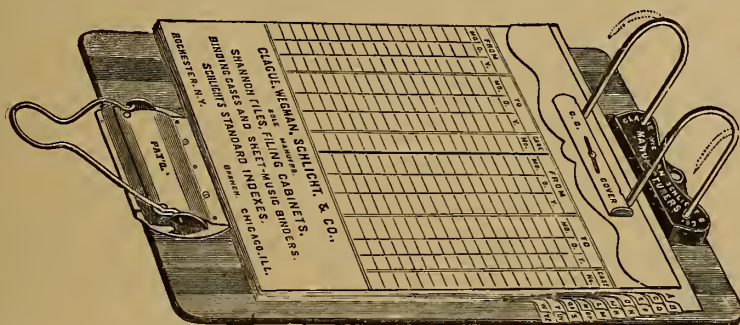 CLAGUE, WEGMAN, SCHLICHT, & CO.,
SOLE MANUFRS.
SHANNON FILES, FILING CABINETS,
BINDING CASES AND SHEET-MUSIC BINDERS.
SCHLICHT'S STANDARD INDEXES.
ROCHESTER, N.Y. BRANCH, CHICAGO, ILL.
FROM TO CASE FROM TO CASE
MO. D. Y. MO. D. Y. NO. MO. D. Y. MO. D. Y. NO.
C.S. COVER
MANUFACTURERS
PAT'D.